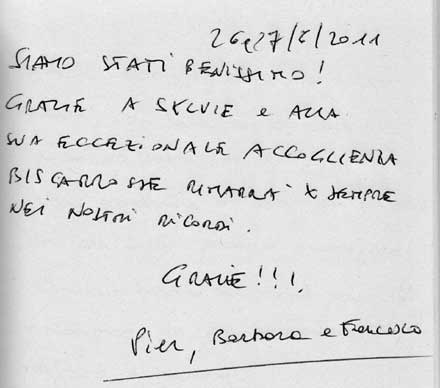 26 e 27/8/2011
SIAMO STATI BENISSIMO!
GRAZIE A SYLVIE e ALLA
SUA ECCEZIONALE ACCOGLIENZA
BISCARROSSE RIMARRA' X SEMPRE
NEI NOSTRI RICORDI.
GRAZIE!!!
Pier, Barbara e Francesco